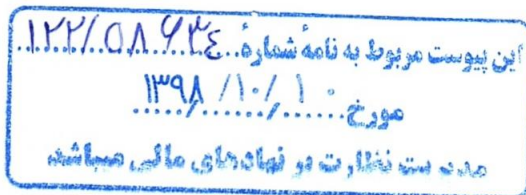 این پیوست مربوط به نامهٔ شمارهٔ ۱۲۲/۵۸۶۳۴
مورخ ۱۳۹۸/۱۰/۱۰
مدیریت نظارت بر نهادهای مالی میباشد